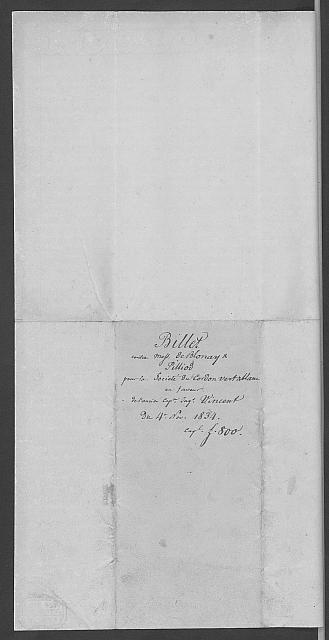 Billet
contre Mess. de Blonay &
Pilliod
pour la Société du Cordon vert
en faveur
Capt. Vincent
Du 4e. Nov. 1834.
Capl. f. 800.